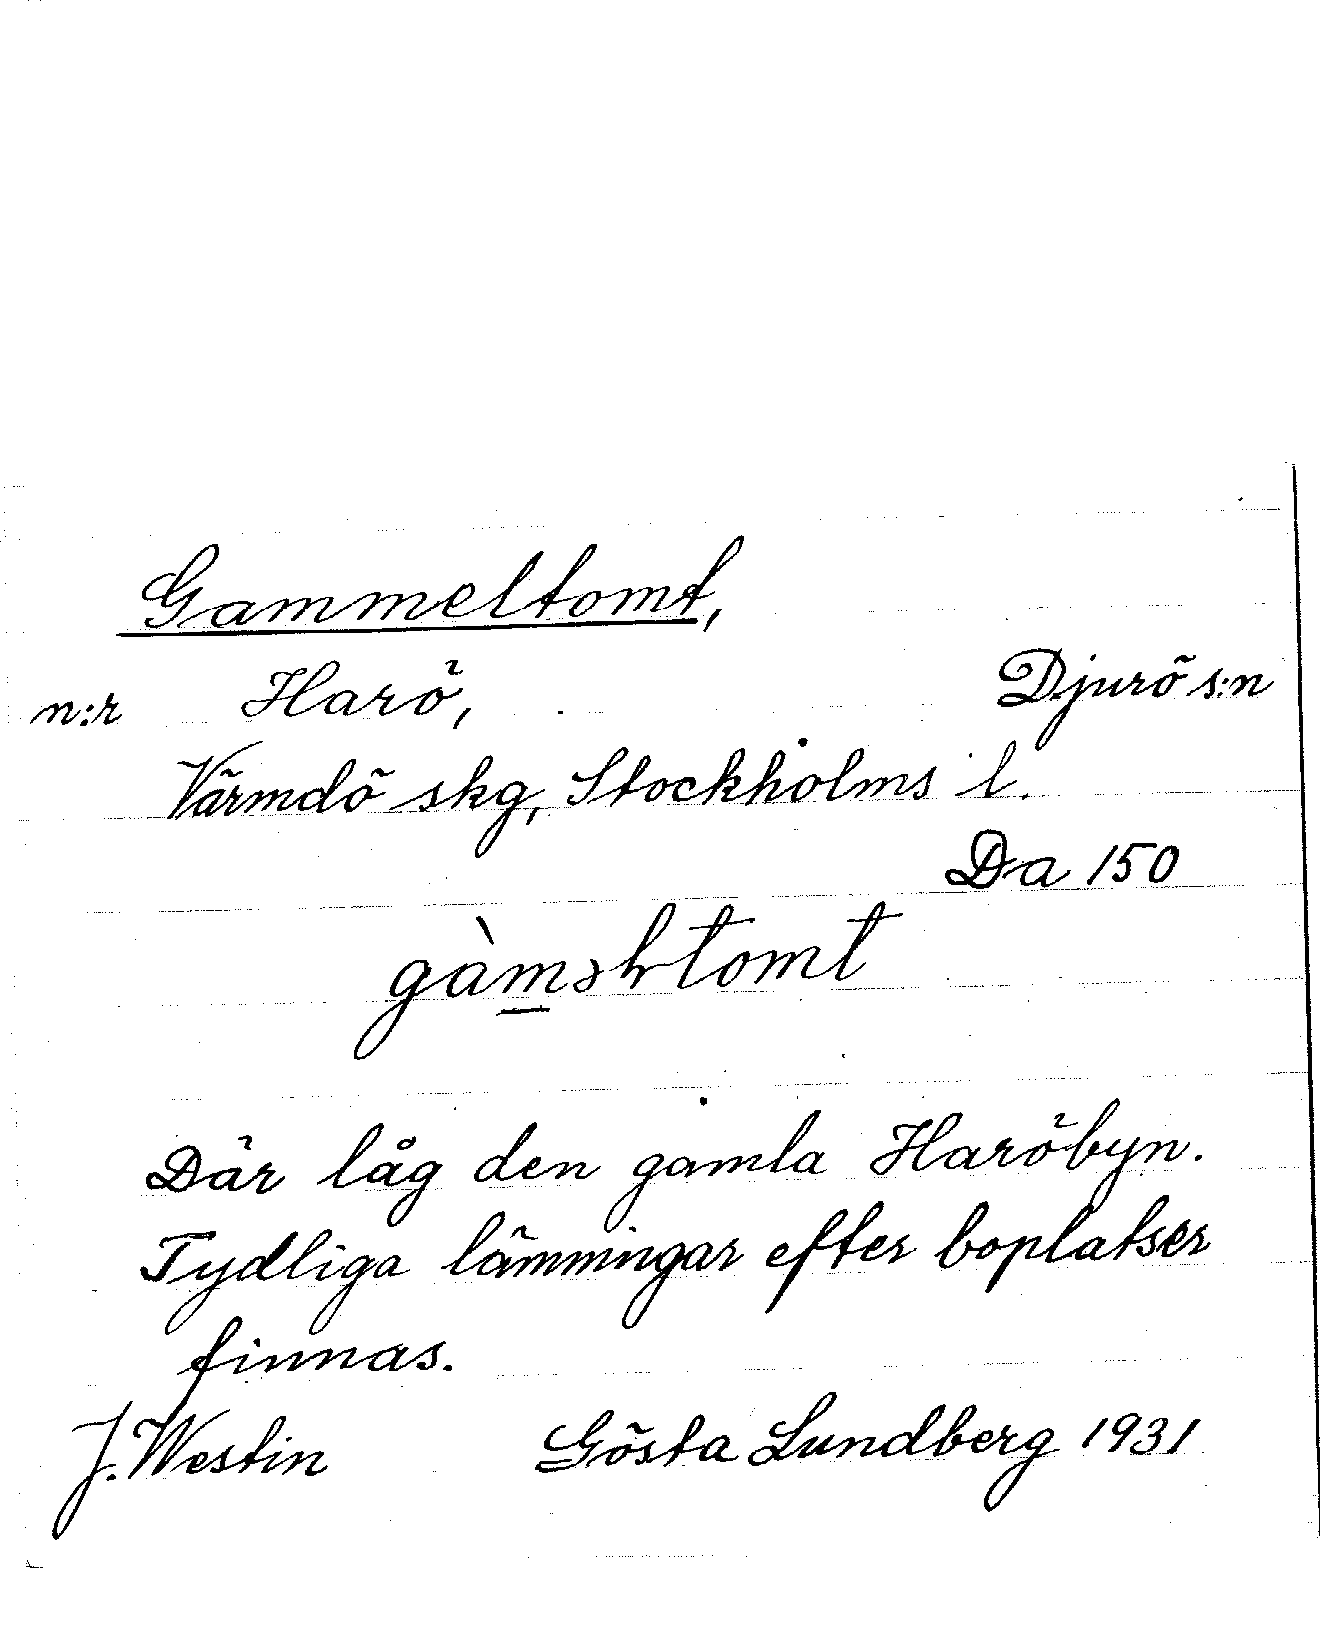 Gammeltomt,
n:r Harö, Djurö s:n
Värmdö skg, Stockholms l.
Da 150
gàm̲əltomt
Där låg den gamla Haröbyn.
Tydliga lämningar efter boplatser
finnas.
J. Westin Gösta Lundberg 1931